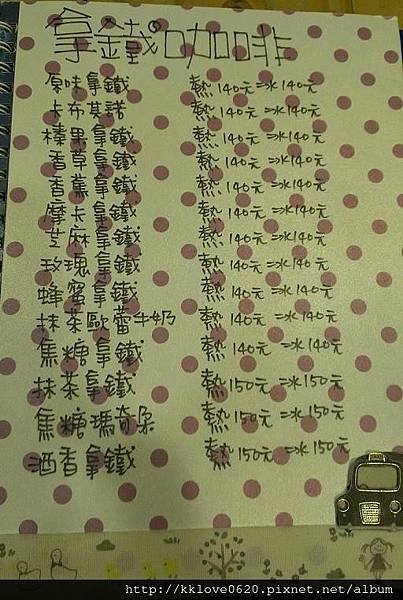 拿鐵咖啡
原味拿鐵 熱140元 冰140元
卡布其諾 熱140元 冰140元
榛果拿鐵 熱140元 冰140元
香草拿鐵 熱140元 冰140元
香蕉拿鐵 熱140元 冰140元
摩卡拿鐵 熱140元 冰140元
芝麻拿鐵 熱140元 冰140元
玫瑰拿鐵 熱140元 冰140元
蜂蜜拿鐵 熱140元 冰140元
抹茶歐蕾牛奶 熱140元 冰140元
焦糖拿鐵 熱140元 冰140元
抹茶拿鐵 熱150元 冰150元
焦糖瑪奇朵 熱150元 冰150元
酒香拿鐵 熱150元 冰150元
http://kklove0620.pixnet.net/album